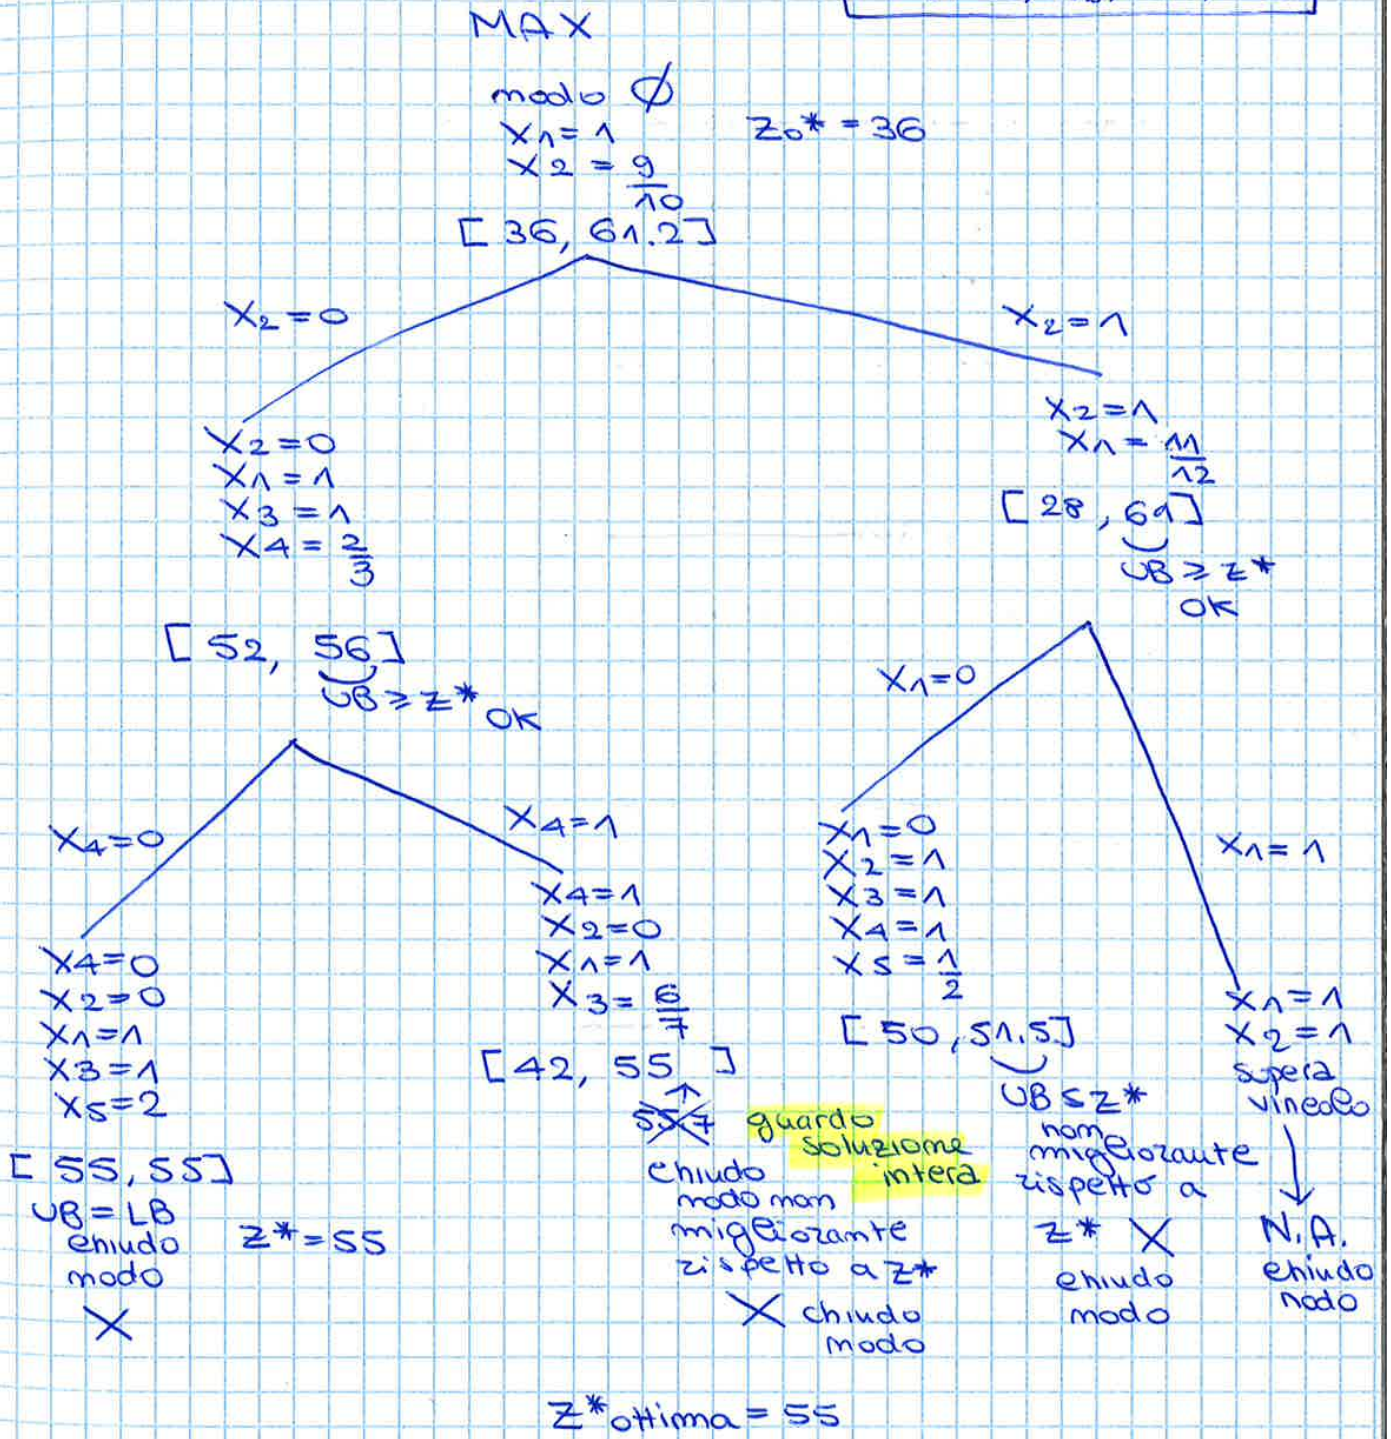 MAX
nodo Ø
X1 = 1
Z0* = 36
X2 = 9/10
[36, 61.2]
X2 = 0
X2 = 1
X2 = 0
X1 = 1
X3 = 1
X4 = 2/3
[52, 56]
UB ≥ Z* OK
X2 = 1
X1 = 11/12
[28, 61]
UB ≥ Z*
OK
X4 = 0
X4 = 1
X1 = 0
X1 = 1
X4 = 0
X2 = 0
X1 = 1
X3 = 1
X5 = 2
[55, 55]
UB = LB
chiudo
nodo
X
Z* = 55
X4 = 1
X2 = 0
X1 = 1
X3 = 6/7
[42, 55 ]
↑
55.7
guardo
soluzione
intera
chiudo
nodo non
migliorante
rispetto a Z*
X chiudo
nodo
X1 = 0
X2 = 1
X3 = 1
X4 = 1
X5 = 1/2
[50, 51.5]
UB ≤ Z*
non
migliorante
rispetto a
Z* X
chiudo
nodo
X1 = 1
X2 = 1
supera
vincolo
N.A.
chiudo
nodo
Z* ottima = 55